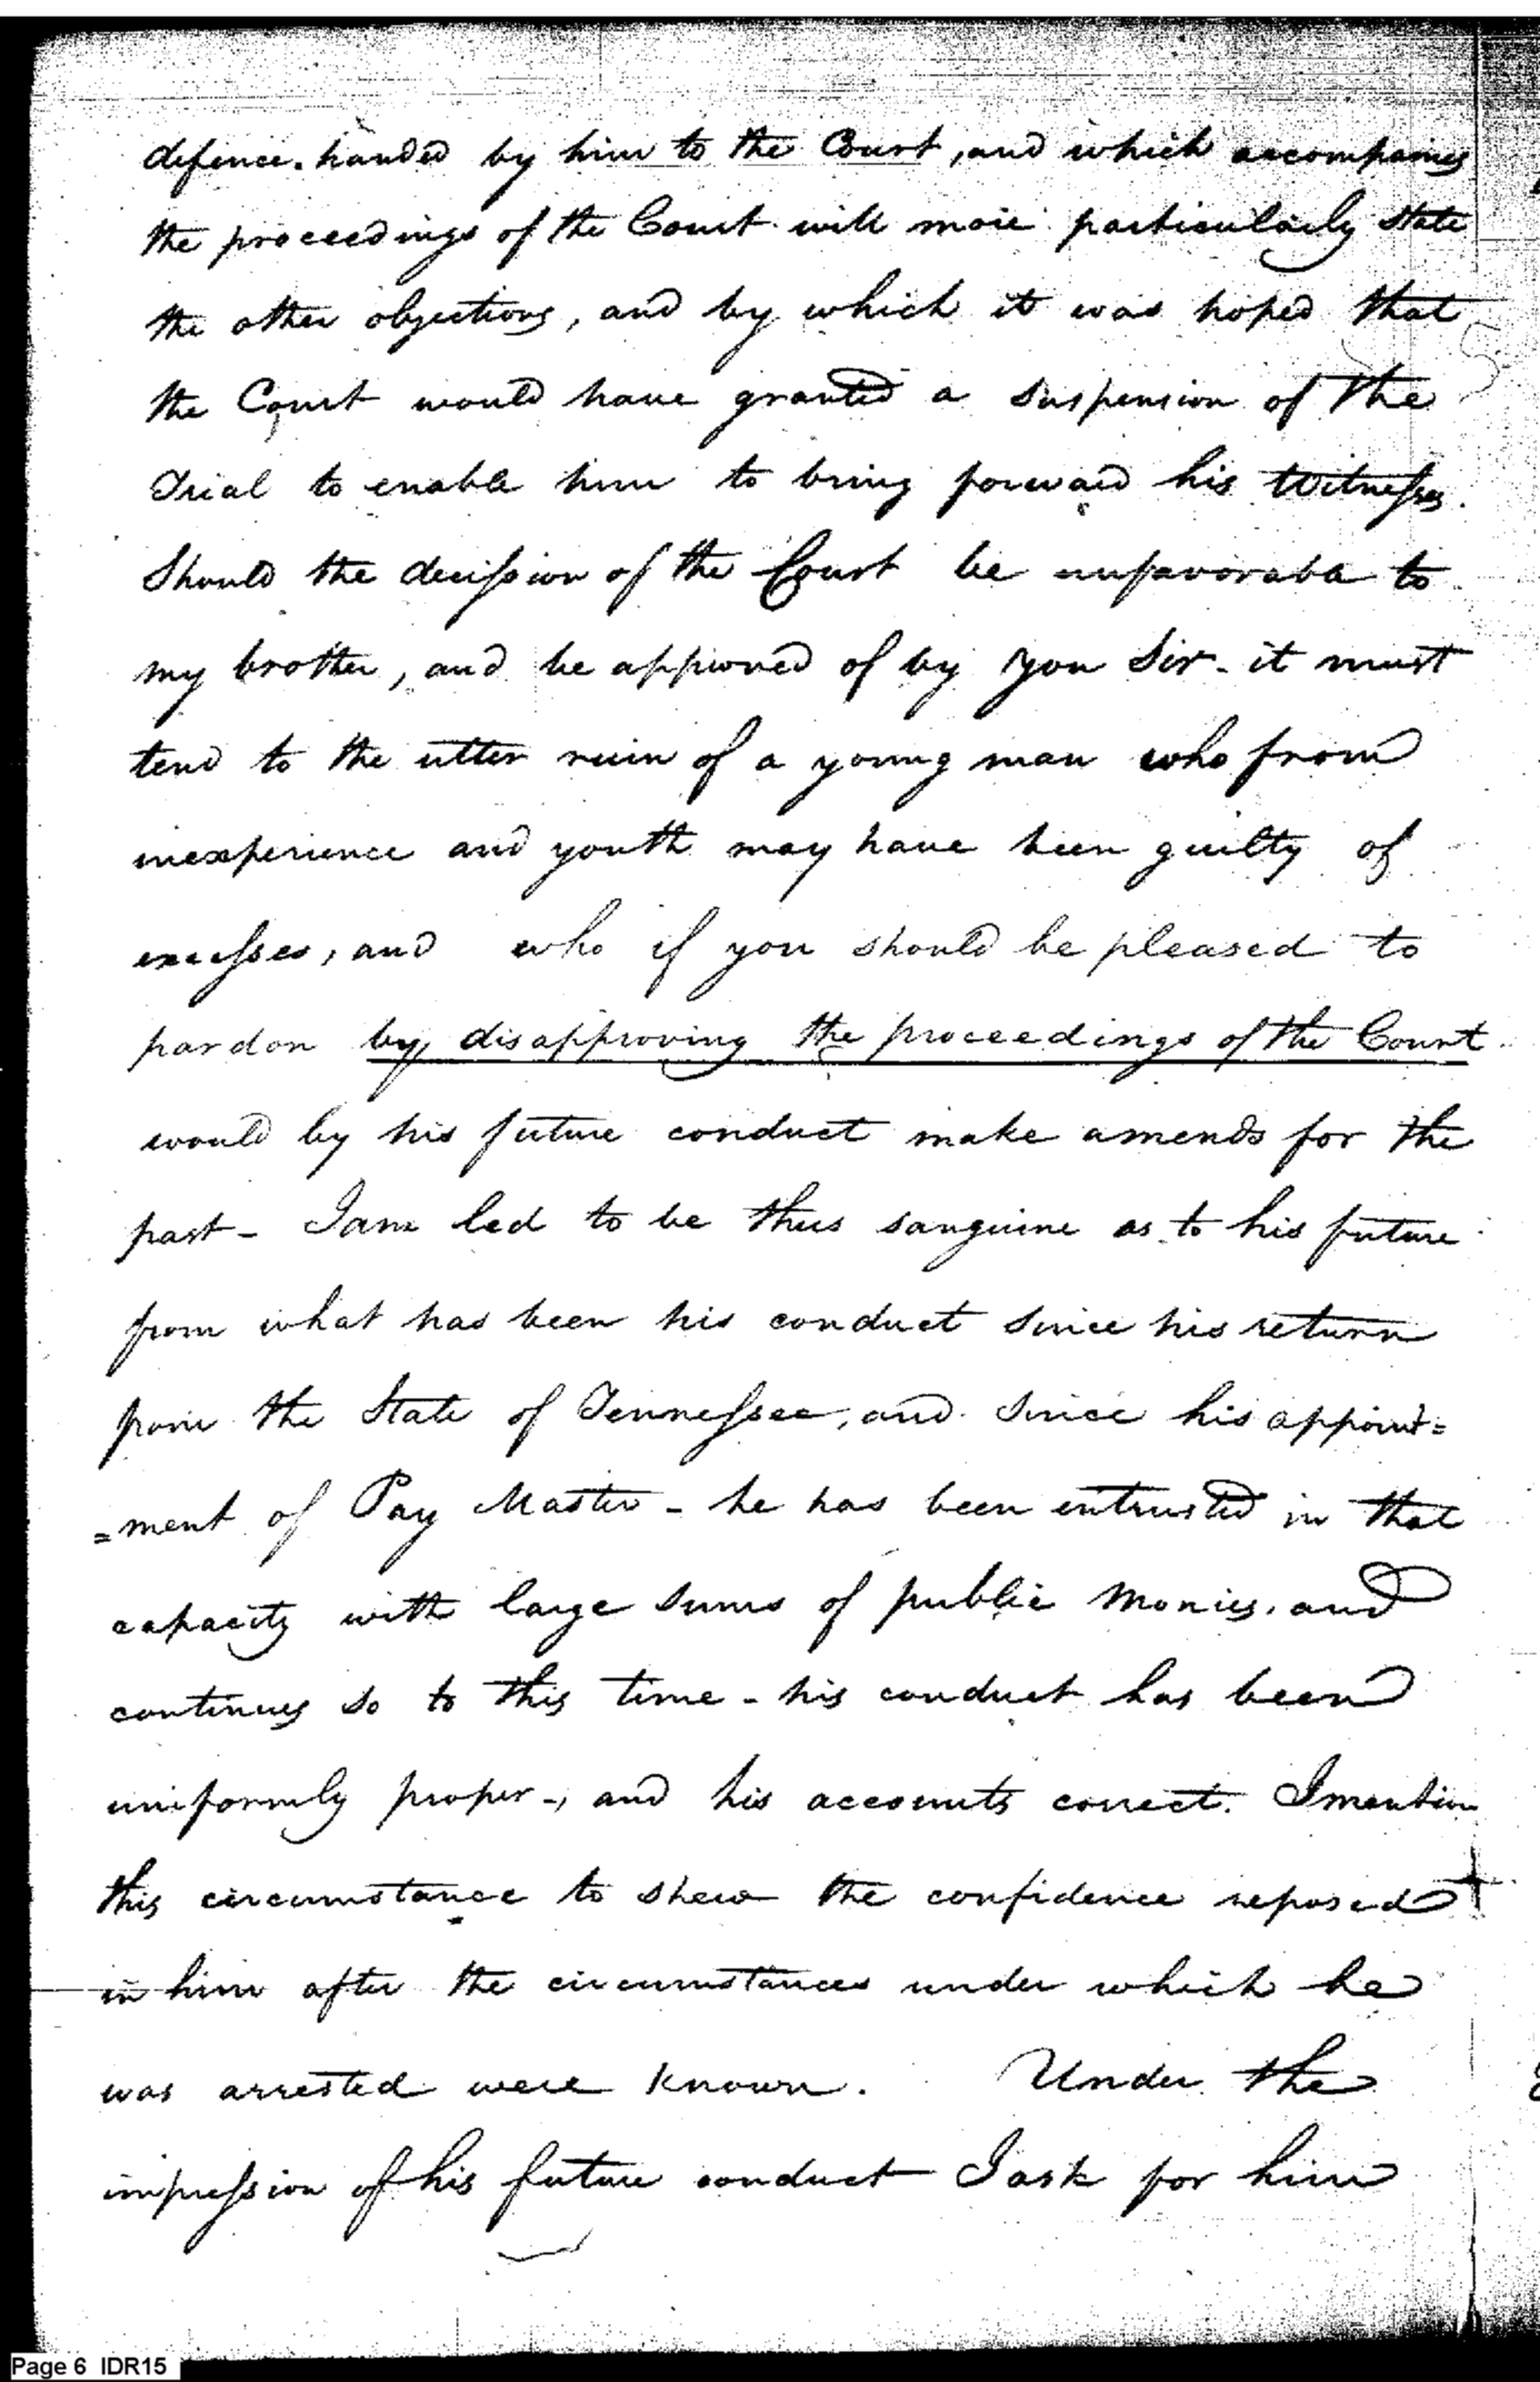 defence. handed by him to the Court, and which accompanies
the proceedings of the Court will more particularly state
the other objections, and by which it was hoped that
the Court would have granted a suspension of the
Trial to enable him to bring forward his Witnesses.
Should the decission of the Court be unfavorable to
my brother, and be approved of by you Sir - it must
tend to the utter ruin of a young man who from
inexperience and youth may have been guilty of
excesses, and who if you should be pleased to
pardon by disapproving the proceedings of the Court
would by his future conduct make amends for the
past - I am led to be thus sanguine as to his future
from what has been his conduct since his return
from the State of Tennessee, and since his appoint=
=ment of Pay Master - he has been entrusted in that
capacity with large sums of public Monies, and
continues so to this time - his conduct has been
uniformly proper -, and his accounts correct. I mention
this circumstance to shew the confidence reposed
in him after the circumstances under which he
was arrested were known. Under the
impression of his future conduct I ask for him
Page 6 IDR15